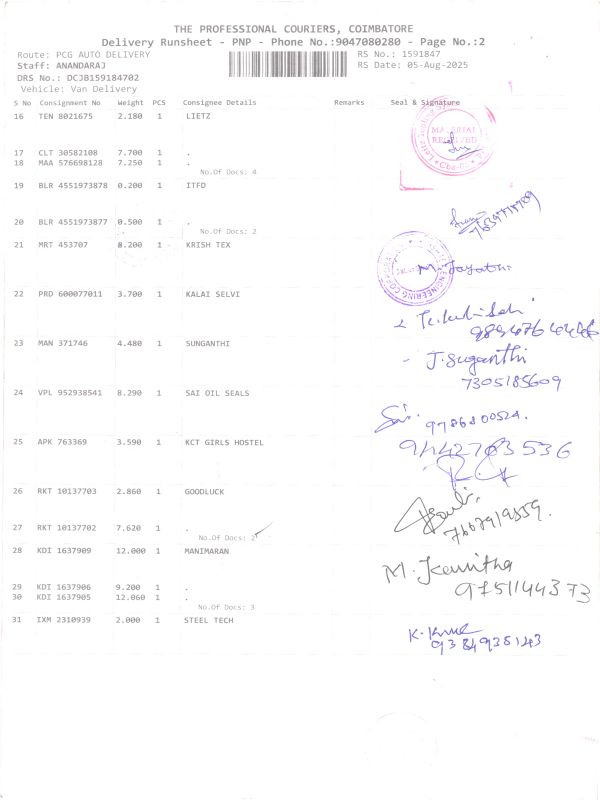 THE PROFESSIONAL COURIERS, COIMBATORE
Delivery Runsheet - PNP - Phone No.:9047080280 - Page No.:2
Route: PCG AUTO DELIVERY RS No.: 1591847
Staff: ANANDARAJ RS Date: 05-Aug-2025
DRS No.: DCJB159184702
Vehicle: Van Delivery
S No Consignment No Weight PCS Consignee Details Remarks Seal & Signature
16 TEN 8021675 2.180 1 LIETZ
MATERIAL
RECEIVED
17 CLT 30582108 7.700 1 .
18 MAA 576698128 7.250 1 .
No.Of Docs: 4
19 BLR 4551973878 0.200 1 ITFD
20 BLR 4551973877 0.500 1 .
No.Of Docs: 2
21 MRT 453707 8.200 1 KRISH TEX
M. Jayathi
22 PRD 600077011 3.700 1 KALAI SELVI
23 MAN 371746 4.480 1 SUNGANTHI
- J. Suganthi
7305185609
24 VPL 952938541 8.290 1 SAI OIL SEALS
Sai.
9786800524.
25 APK 763369 3.590 1 KCT GIRLS HOSTEL
9442763536
26 RKT 10137703 2.860 1 GOODLUCK
7667919559.
27 RKT 10137702 7.620 1 .
No.Of Docs: 2
28 KDI 1637909 12.000 1 MANIMARAN
M. Kavitha
9751144373
29 KDI 1637906 9.200 1 .
30 KDI 1637905 12.060 1 .
No.Of Docs: 3
31 IXM 2310939 2.000 1 STEEL TECH
9384938143